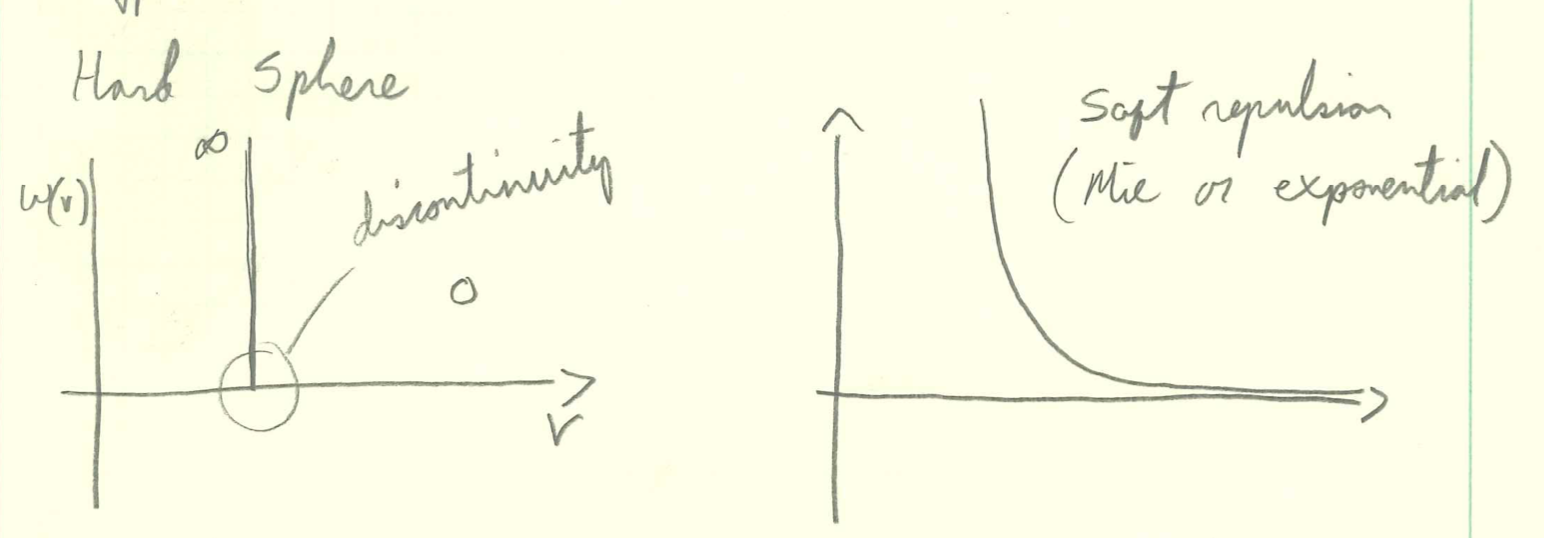 Hard Sphere
∞
w(r)
discontinuity
0
r
Soft repulsion
(Mie or exponential)